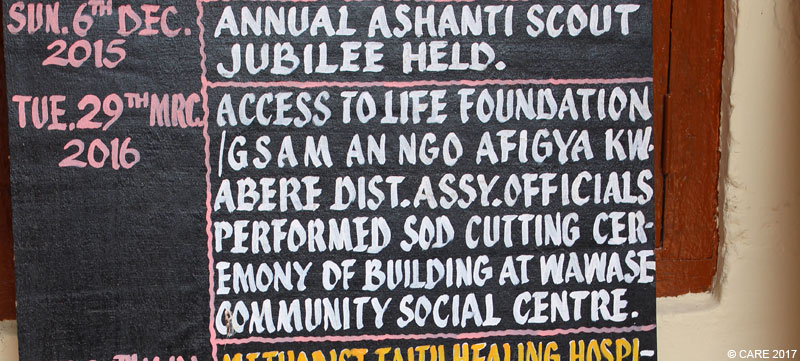 SUN. 6TH DEC.
2015
ANNUAL ASHANTI SCOUT
JUBILEE HELD.
TUE. 29TH MRC.
2016
ACCESS TO LIFE FOUNDATION
/GSAM AN NGO AFIGYA KW-
ABERE DIST. ASSY. OFFICIALS
PERFORMED SOD CUTTING CER-
EMONY OF BUILDING AT WAWASE
COMMUNITY SOCIAL CENTRE.
METHODIST FAITH HEALING HOSPI-
© CARE 2017